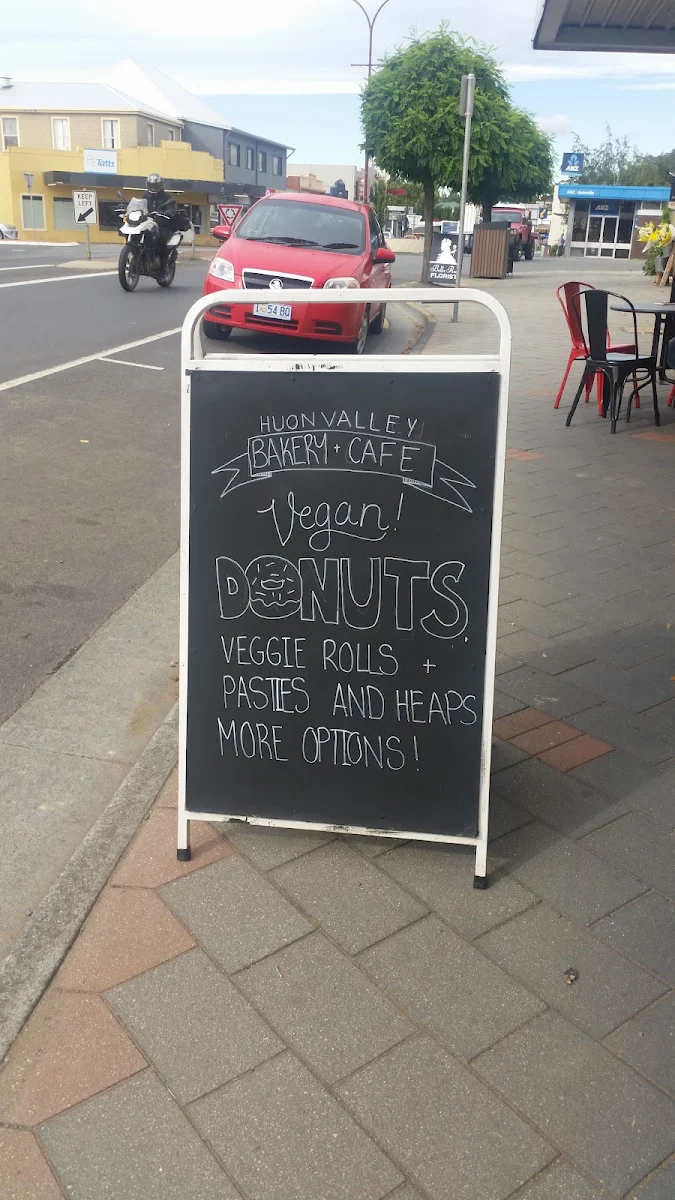 Tatts
KEEP
LEFT
ANZ
ANZ
FLORIST
HUON VALLEY
BAKERY + CAFE
Vegan!
DONUTS,
VEGGIE ROLLS +
PASTIES AND HEAPS
MORE OPTIONS!